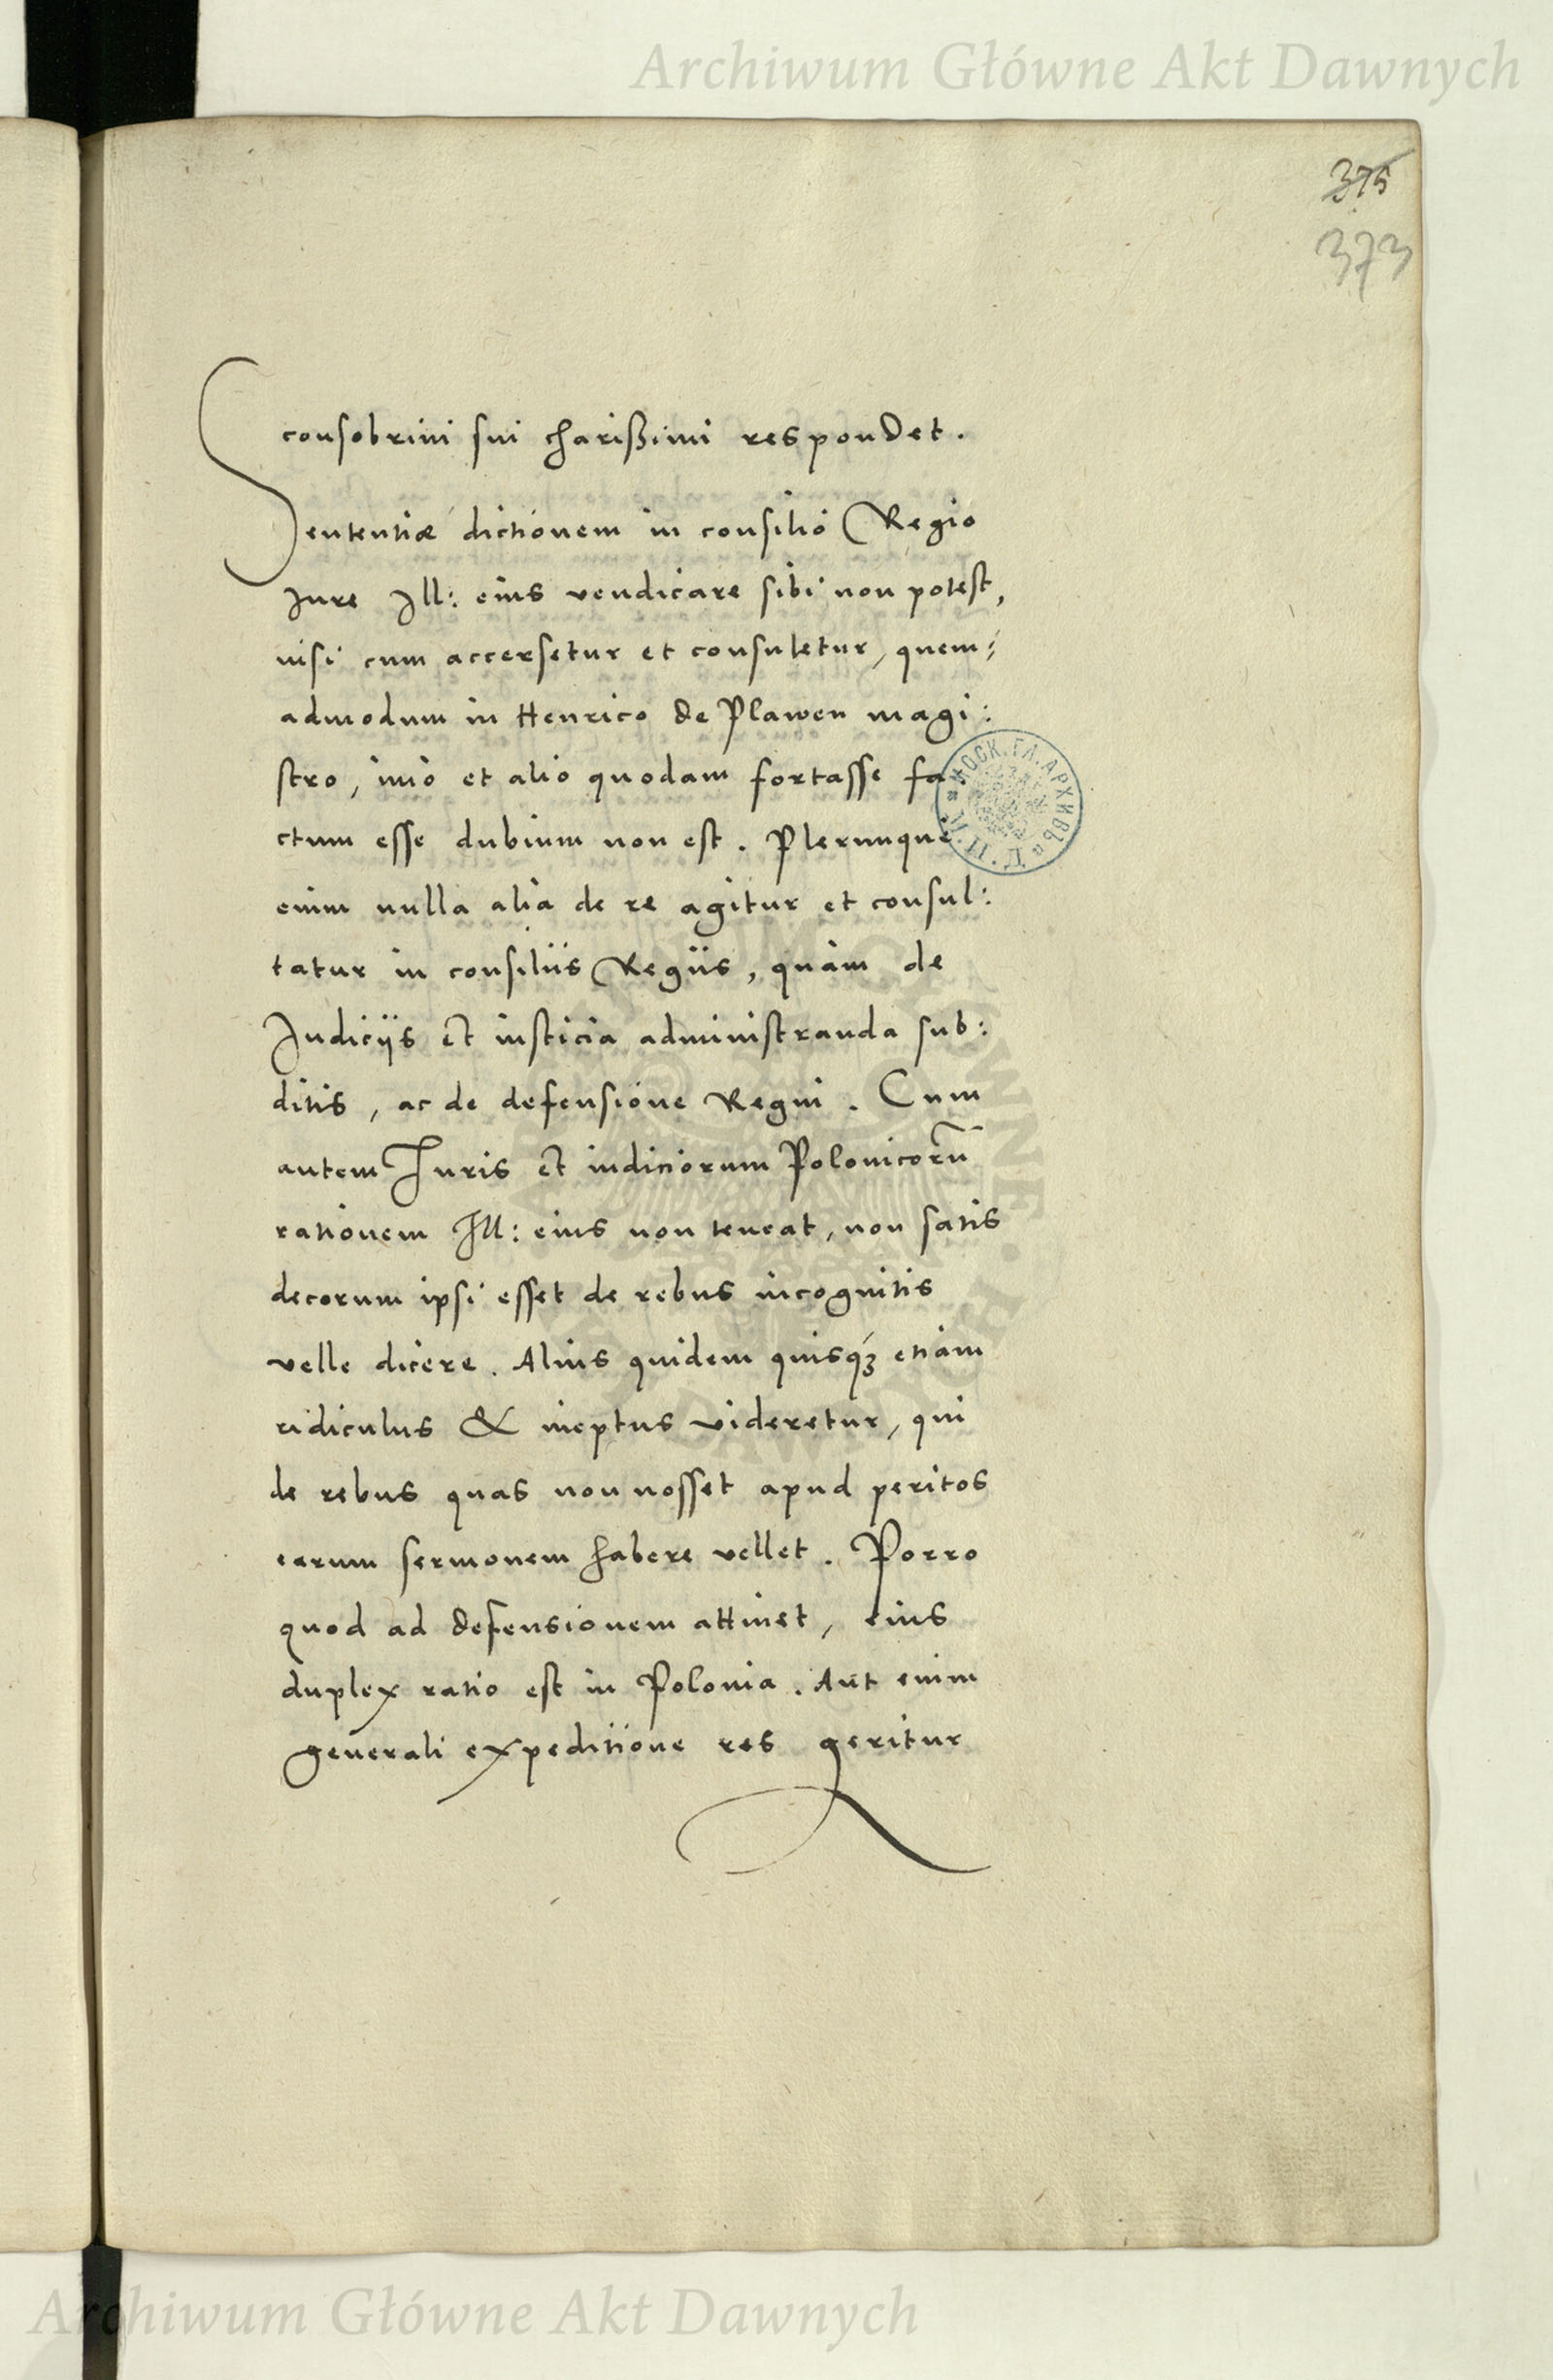 Archiwum Główne Akt Dawnych
375
373
consobrini sui charißimi respondet.
Sententiæ dictionem in consilio Regio
Jure Ill: eius vendicare sibi non potest,
nisi cum accersetur et consuletur, quem:
admodum in Henrico de Plawen magi:
stro, imo et alio quodam fortasse fa:
ctum esse dubium non est. Plerunque
enim nulla alia de re agitur et consul:
tatur in consiliis Regiis, quàm de
Judiciis et iusticia administranda sub:
ditis, ac de defensione Regni. Cum
autem Juris et iudiciorum Polonicorū
rationem Ill: eius non teneat, non satis
decorum ipsi esset de rebus incognitis
velle dicere. Alius quidem quisqꝫ etiam
ridiculus & ineptus videretur, qui
de rebus quas non nosset apud peritos
earum sermonem habere vellet. Porro
quod ad defensionem attinet, eius
duplex ratio est in Polonia. Aut enim
generali expeditione res geritur
МОСК. ГЛ. АРХИВЪ
Archiwum Główne Akt Dawnych